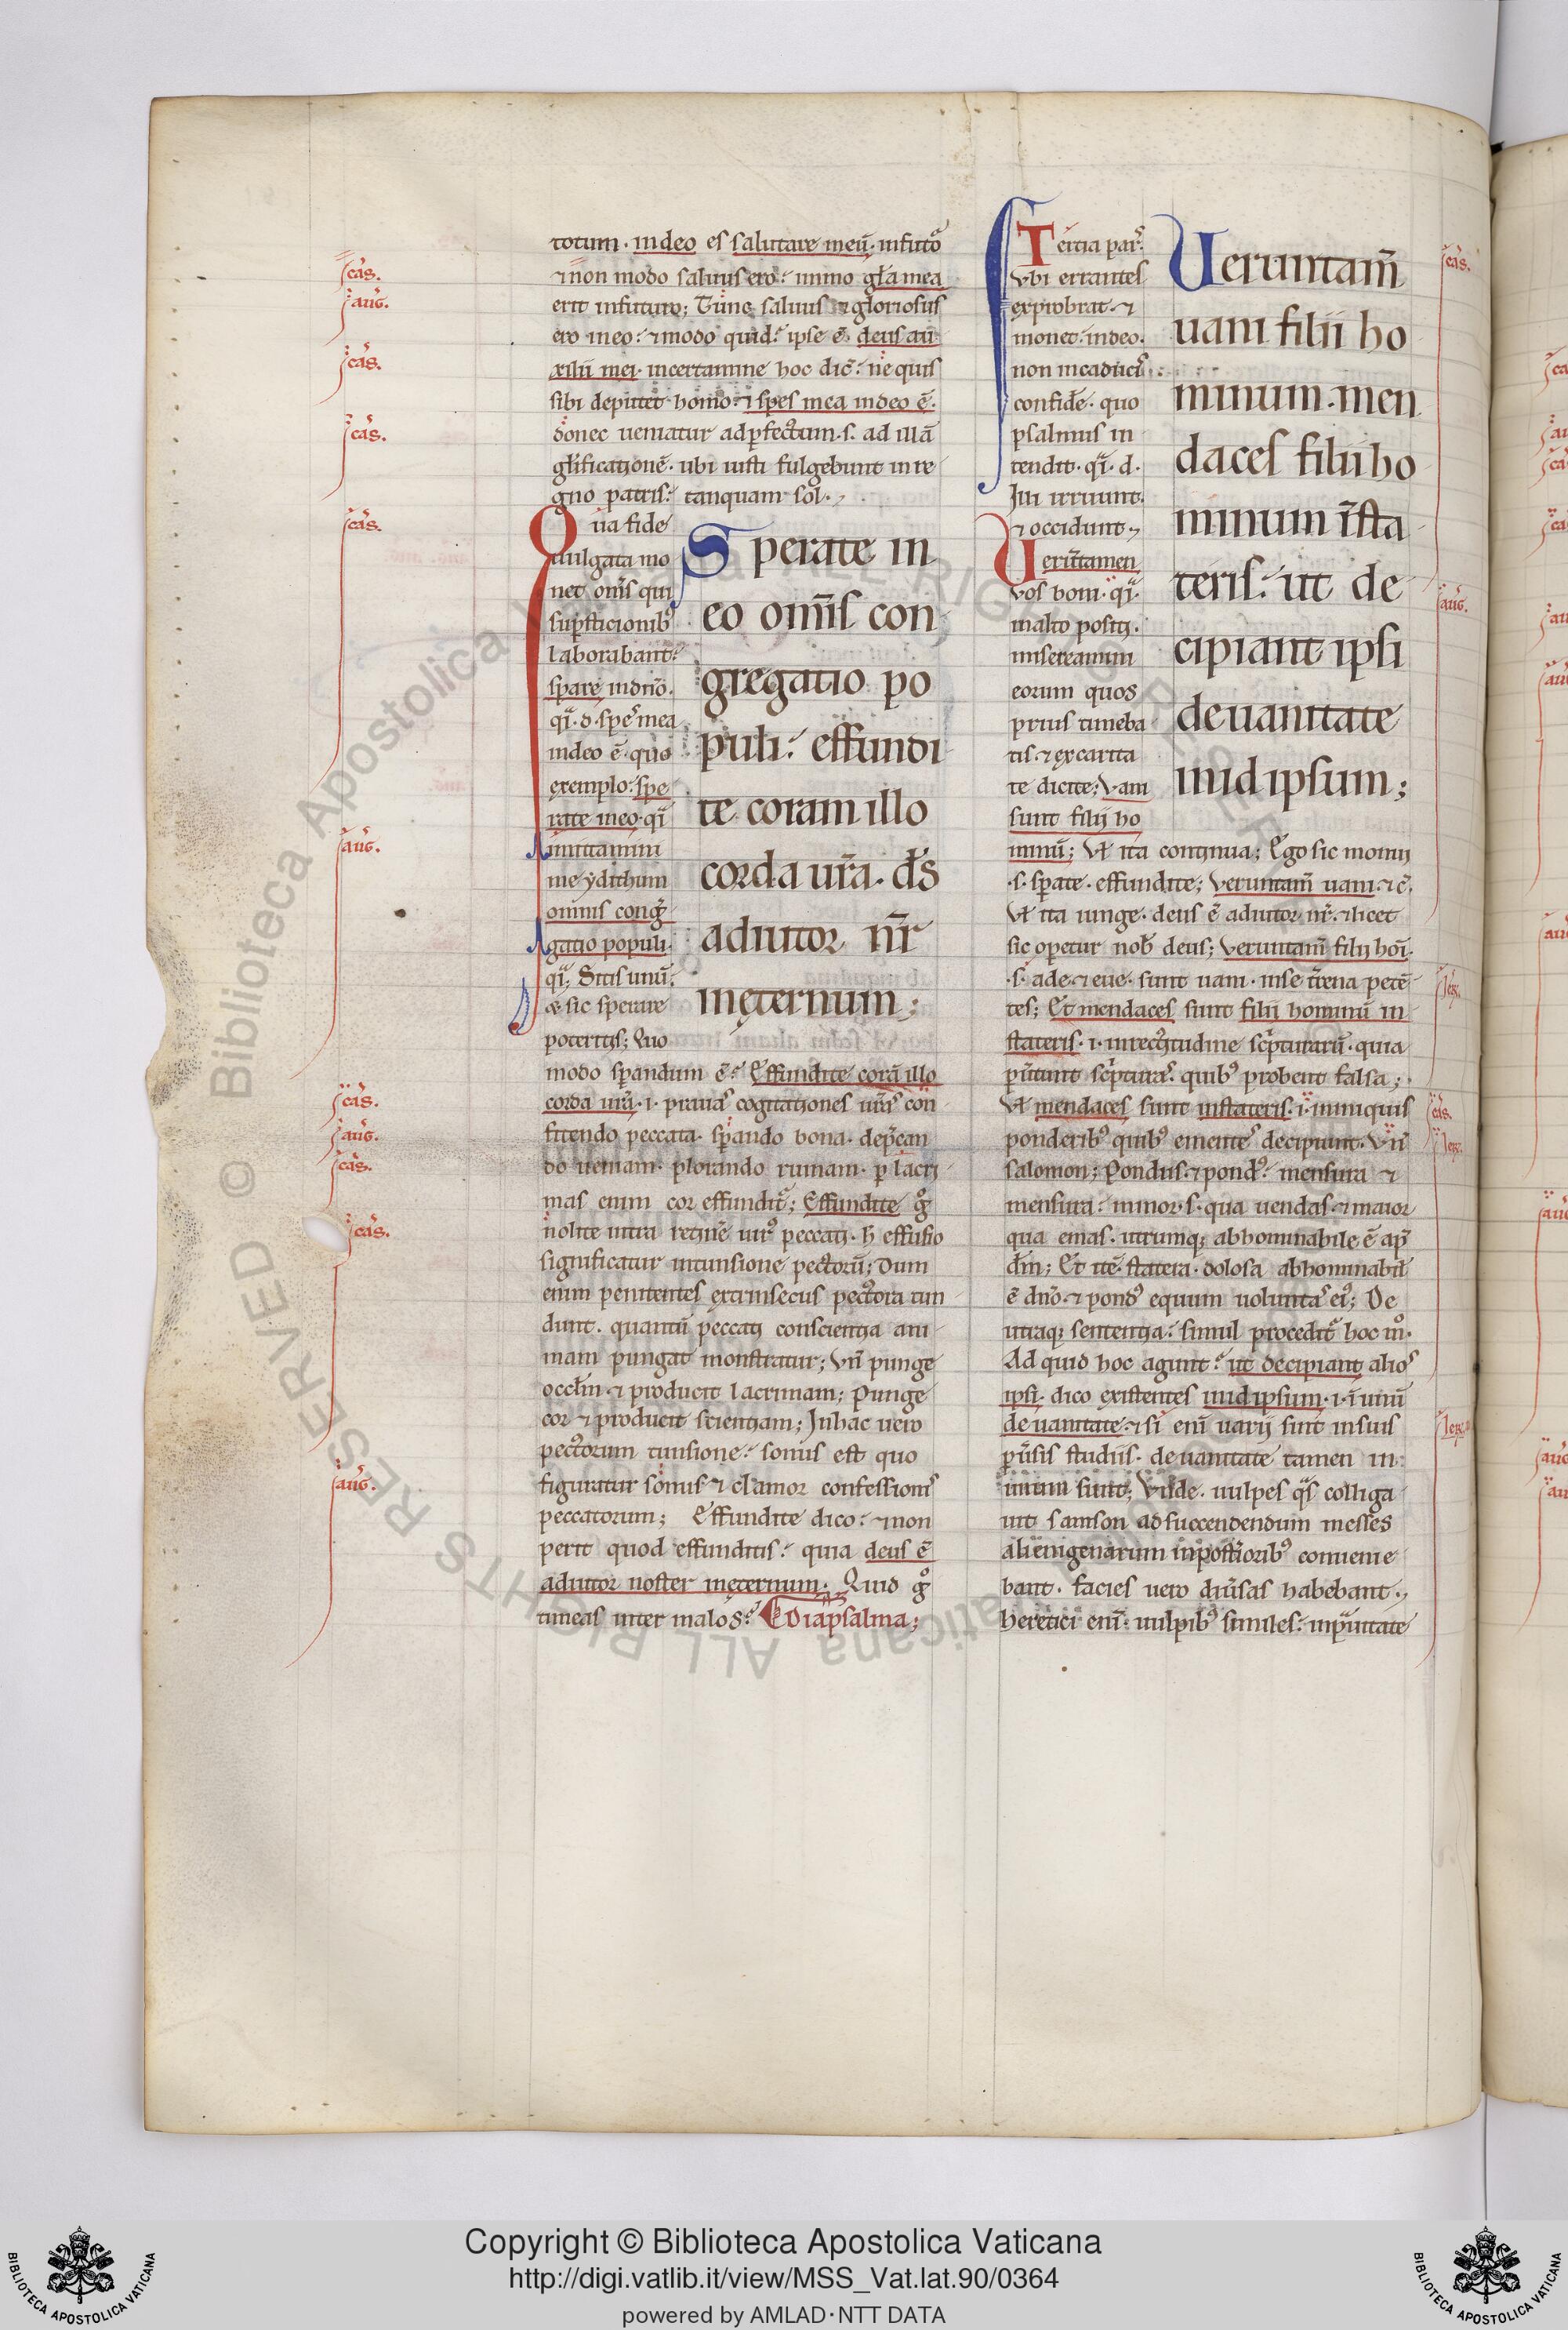 totum. in deo es salutare meū. in futō
⁊ non modo saluus ero. immo gła mea
erit in futuro; Tunc saluus ⁊ gloriosus
ero in eo. ⁊ modo quid. ipse ē. deus au
xilii mei. in certamine hoc dic̄. ne quis
sibi deputet homo. ⁊ spes mea in deo ē.
donec ueniatur ad pfectum. s. ad illā
glificationē. ubi iusti fulgebunt in re
gno patris. tanquam sol.
Q uia fide
uulgata mo
net om̄s qui
supsticionibꝰ
laborabant.
sperare in dn̄o.
qͣ. d. spes mea
in deo ē. quo
exemplo. spe
rate in eo. qͣ
imitamini
me ydithum
omnis cong
gatio populi.
qͣ. Sitis unū.
⁊ sic sperare
poteritis; Quo
modo spandum ē. Effundite corā illo
corda ur̄a. i. prauas cogitationes ur̄as con
fitendo peccata. spando bona. depcan
do ueniam. plorando ruinam. p lacri
mas enim cor effundit; Effundite gͦ
nolite intra retinē uirꝰ peccati. h̄ effusio
significatur in tunsione pectorū; Dum
enim penitentes extrinsecus pectora tun
dunt. quantū peccati conscientia ani
mam pungat monstratur; Vn̄ punge
occłm ⁊ producit lacrimam; Punge
cor ⁊ producit scientiam; In hac uero
pectorum tunsione. sonus est quo
figuratur sonus ⁊ clamor confessionis
peccatorum; Effundite dico. ⁊ non
perit quod effunditis. quia deus ē
adiutor noster in ęternum. Quid gͦ
timeas inter malos. Diapsalma;
S perate in
eo om̄is con
gregatio po
puli. effundi
te coram illo
corda ur̄a. d̄s
adiutor nr̄
in ęternum;
Tertia pars.
Vbi errantes
exprobrat. ⁊
monet. in deo.
confidē. quo
psalmus in
tendit. qͣ. d.
Illi irruunt.
⁊ occidunt.
Veruntamen
Vos boni. qͣ.
in alto positi.
miseremini
eorum quos
prius timeba
tis. ⁊ ex carita
te dicite; Vani
sunt filii ho
minū; Vt ita continua; Ego sic monui
.s. sperate. effundite; Veruntam̄ uani. ⁊ c̄.
Vt ita iunge. deus ē adiutor nr̄. ⁊ licet
sic operetur nob̄ deus; Veruntam̄ filii hoī.
.s. ade ⁊ eue. sunt uani. in se terrena petē
tes; Et mendaces sunt filii hominū in
stateris. i. in rectitudine scripturarū. quia
putant scripturas. quibꝰ probent falsa;
Vt mendaces sunt in stateris. i. in iniquis
ponderibꝰ quibꝰ ementes decipiunt. Vn̄
salomon; Pondus ⁊ pondꝰ. mensura ⁊
mensura. minor. s. qua uendas. ⁊ maior
qua emas. utrumq; abhominabile ē apd̄
dm̄; Et itē. statera dolosa abhominabil
ē dn̄o. ⁊ pondꝰ equum uoluntas eiꝰ; De
utraq; sententia. simul procedit hoc mͦ.
Ad quid hoc agunt. ut decipiant alios
ipsi. dico existentes in id ipsum. i. ī unū
de uanitate. ⁊ si enī uarii sint in suis
puersis studiis. de uanitate tamen in
unum sunt; Vnde. uulpes qͣs colliga
uit samson ad succendendum messes
alienigenarum in postioribꝰ conuenie
bant. facies uero diuersas habebant.
heretici enī. uulpibꝰ similes. in puitate
Veruntam̄
uani filii ho
minum. men
daces filii ho
minum ī sta
teris. ut de
cipiant ipsi
de uanitate
in id ipsum;
cas.
aug.
cas.
cas.
cas.
aug.
cas.
aug.
cas.
cas.
aug.
cas.
aug.
cas.
Copyright © Biblioteca Apostolica Vaticana
http://digi.vatlib.it/view/MSS_Vat.lat.90/0364
powered by AMLAD·NTT DATA
BIBLIOTECA APOSTOLICA VATICANA
BIBLIOTECA APOSTOLICA VATICANA